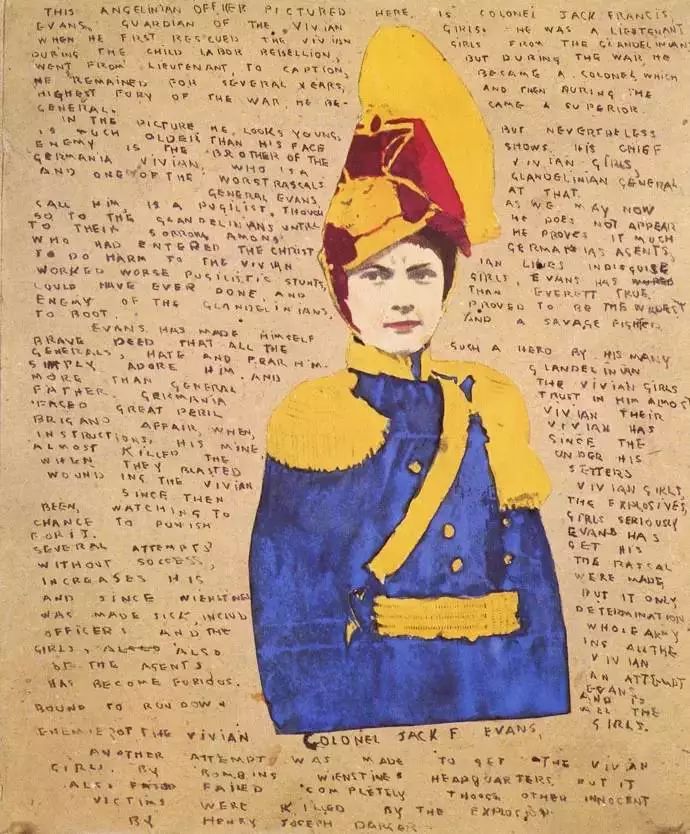 THIS ANGELINIAN OFFICER PICTURED HERE, IS COLONEL JACK FRANCIS,
EVANS, GUARDIAN OF THE VIVIAN GIRLS. HE WAS A LIEUTENANT
WHEN HE FIRST RESCUED THE VIVIAN GIRLS FROM THE GLANDELINIANS
DURING THE CHILD LABOR REBELLION, BUT DURING THE WAR HE
WENT FROM LIEUTENANT, TO CAPTION, BECAME A COLONEL WHICH
HE REMAINED FOR SEVERAL YEARS, AND THEN DURING THE
HIGHEST FURY OF THE WAR, HE BE- CAME A SUPERIOR
GENERAL.
IN THE PICTURE HE LOOKS YOUNG, BUT NEVERTHELESS
IS MUCH OLDER THAN HIS FACE SHOWS. HIS CHIEF
ENEMY IS THE BROTHER OF THE VIVIAN GIRLS,
GERMANIA VIVIAN, WHO IS A GLANDELINIAN GENERAL
AND ONE OF THE WORST RASCALS AT THAT.
GENERAL EVANS, AS WE MAY NOW
CALL HIM, IS A PUGILIST, THOUGH HE DOES NOT APPEAR
SO TO THE GLANDELINIANS UNTIL HE PROVES IT MUCH
TO THEIR SORROW. AMONG GERMANIAS AGENTS,
WHO HAD ENTERED THE CHRIST IAN LINES IN DISGUISE
TO DO HARM TO THE VIVIAN GIRLS, EVANS HAS
WORKED WORSE PUGILISTIC STUNTS, THAN EVERETT TRUE
COULD HAVE EVER DONE, AND PROVED TO BE THE
ENEMY OF THE GLANDELINIANS, AND A SAVAGE FIGHTER
TO BOOT.
EVANS HAS MADE HIMSELF SUCH A HERO BY HIS MANY
BRAVE DEED THAT ALL THE GLANDELINIAN
GENERALS, HATE AND FEAR HIM. THE VIVIAN GIRLS
SIMPLY ADORE HIM AND TRUST IN HIM ALMOST
MORE THAN GENERAL VIVIAN THEIR
FATHER. GERMANIA VIVIAN HAS
FACED GREAT PERIL SINCE THE
BRIGAND AFFAIR, WHEN, UNDER HIS
INSTRUCTIONS, HIS MINE SETTERS
ALMOST KILLED THE VIVIAN GIRLS,
WHEN THEY BLASTED THE EXPLOSIVES,
WOUNDING THE VIVIAN GIRLS SERIOUSLY
SINCE THEN EVANS HAS
BEEN, WATCHING TO GET HIS
CHANCE TO PUNISH THE RASCAL
FOR IT.
SEVERAL ATTEMPTS WERE MADE
WITHOUT SUCCESS, BUT IT ONLY
INCREASES HIS DETERMINATION
AND SINCE WIENSTINES WHOLE ARMY
WAS MADE SICK, INCLUD ING ALL THE
OFFICERS AND THE VIVIAN
GIRLS, ALSO AN ATTEMPT
OF THE AGENTS EVANS
HAS BECOME FURIOUS. AND IS
BOUND TO RUN DOWN ALL THE
ENEMIE OF THE VIVIAN GIRLS.
COLONEL JACK F EVANS,
ANOTHER ATTEMPT WAS MADE TO GET THE VIVIAN
GIRLS BY BOMBING WIENSTINES HEADQUARTERS BUT IT
ALSO FAILED COMPLETELY THOUGH OTHER INNOCENT
VICTIMS WERE KILLED BY THE EXPLOSION
BY HENRY JOSEPH DARGER